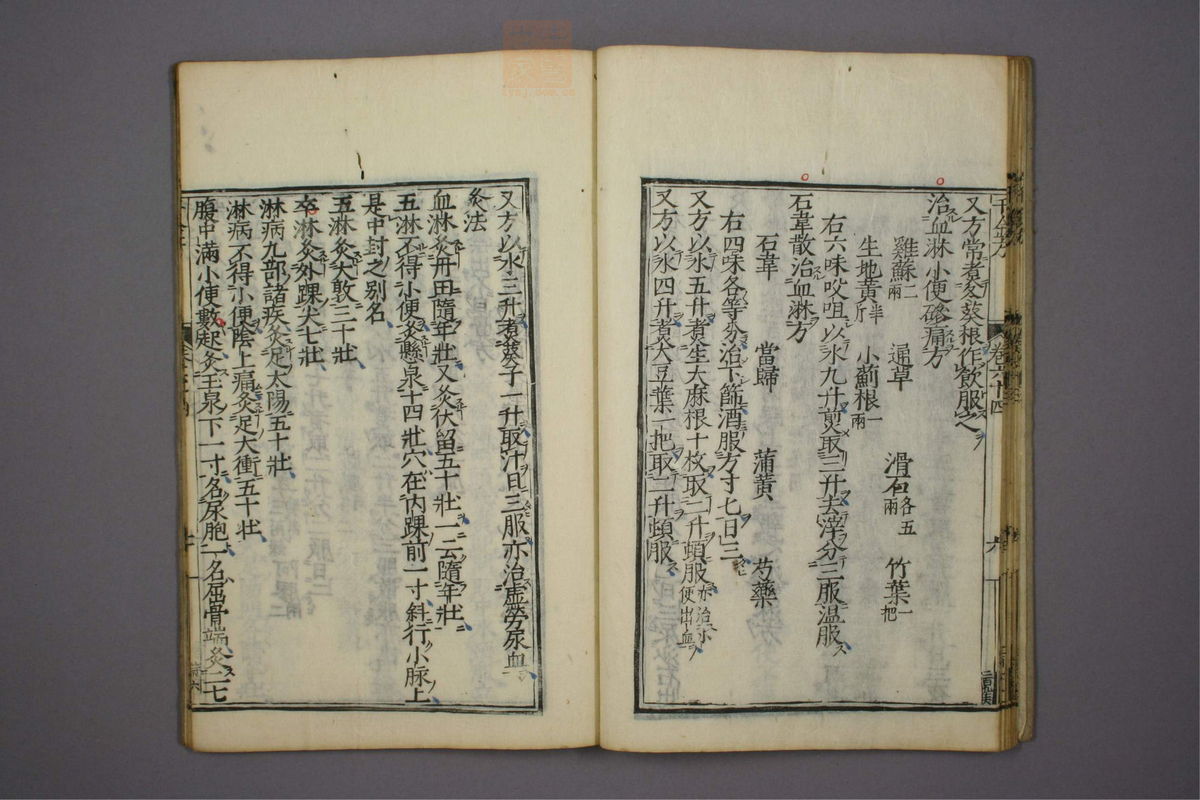 又方常煮冬葵根作飲服之
治血淋小便磣痛方
雞蘇二兩 通草 滑石各五兩 竹葉一把
生地黃半斤 小薊根一兩
右六味㕮咀以水九升煎取三升去滓分三服温服
石韋散治血淋方
石韋 當歸 蒲黃 芍藥
右四味各等分治下篩酒服方寸七日三
又方以水五升煮生大麻根十枚取二升頓服亦治小便出血
又方以水四升煮大豆葉一把取二升頓服
又方以水三升煮葵子一升取汁日三服亦治虛勞尿血
灸法
血淋灸丹田隨年壯又灸伏留五十壯一云隨年壯
五淋不得小便灸懸泉十四壯穴在內踝前一寸斜行小脉上
是中封之别名
五淋灸大敦三十壯
卒淋灸外踝尖七壯
淋病九部諸疾灸足太陽五十壯
淋病不得小便陰上痛灸足大衝五十壯
腹中滿小便數起灸玉泉下一寸名尿胞一名屈骨端灸二七